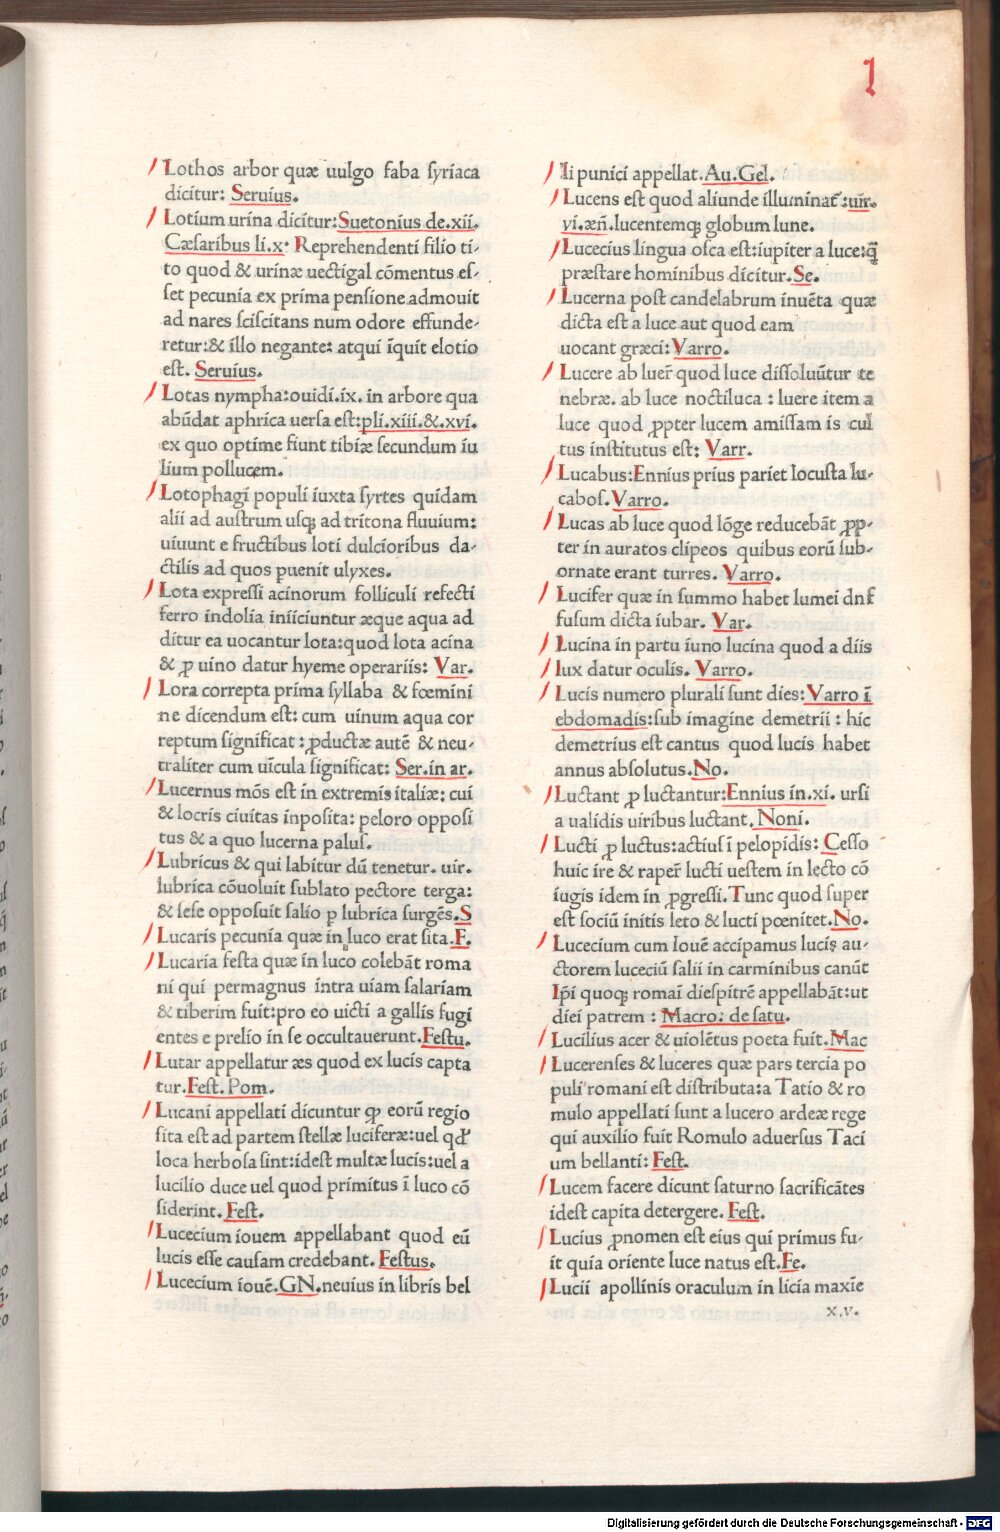 l
Lothos arbor quæ uulgo faba syriaca
dicitur: Seruius.
Lotium urina dicitur:Suetonius de.xii.
Cæsaribus li.x. Reprehendenti filio ti-
to quod & urinæ uectigal cōmentus es-
set pecunia ex prima pensione admouit
ad nares sciscitans num odore effunde-
retur:& illo negante: atqui īquit e lotio
est. Seruius.
Lotas nympha:ouidi.ix. in arbore qua
abūdat aphrica uersa est:pli.xiii.&.xvi.
ex quo optime fiunt tibiæ secundum iu
lium pollucem.
Lotophagi populi iuxta syrtes quidam
alii ad austrum usqꝫ ad tritona fluuium:
uiuunt e fructibus loti dulcioribus da-
ctilis ad quos puenit ulyxes.
Lota expressi acinorum folliculi refecti
ferro indolia iniiciuntur æque aqua ad
ditur ea uocantur lota:quod lota acina
& ꝓ uino datur hyeme operariis: Var.
Lora correpta prima syllaba & fœmini
ne dicendum est: cum uinum aqua cor
reptum significat : ꝓductæ autē & neu-
traliter cum uīcula significat: Ser.in ar.
Lucernus mōs est in extremis italiæ: cui
& locris ciuitas inposita: peloro opposi
tus & a quo lucerna palus.
Lubricus & qui labitur dū tenetur. uir.
lubrica cōuoluit sublato pectore terga:
& sese opposuit salio ꝑ lubrica surgēs.S
Lucaris pecunia quæ in luco erat sita.F.
Lucaria festa quæ in luco colebāt roma
ni qui permagnus intra uiam salariam
& tiberim fuit:pro eo uicti a gallis fugi
entes e prelio in se occultauerunt.Festu.
Lutar appellatur æs quod ex lucis capta
tur.Fest. Pom.
Lucani appellati dicuntur ꝙ eorū regio
sita est ad partem stellæ luciferæ:uel qd'
loca herbosa sint:idest multæ lucis:uel a
lucilio duce uel quod primitus ī luco cō
siderint. Fest.
Lucecium iouem appellabant quod eū
lucis esse causam credebant. Festus.
Lucecium iouē.GN.neuius in libris bel
li punici appellat.Au.Gel.
Lucens est quod aliunde illuminat̄:uir.
vi.æn̄.lucentemqꝫ globum lune.
Lucecius lingua osca est:iupiter a luce:q̄
præstare hominibus dicitur.Se.
Lucerna post candelabrum inuēta quæ
dicta est a luce aut quod eam
uocant græci: Varro.
Lucere ab luer̄ quod luce dissoluūtur te
nebræ. ab luce noctiluca : luere item a
luce quod ꝓpter lucem amissam is cul
tus institutus est: Varr.
Lucabus:Ennius prius pariet locusta lu-
cabos.Varro.
Lucas ab luce quod lōge reducebāt ꝓp-
ter in auratos clipeos quibus eorū sub-
ornate erant turres. Varro.
Lucifer quæ in summo habet lumei dnf
fusum dicta iubar. Var.
Lucina in partu iuno lucina quod a diis
lux datur oculis. Varro.
Lucis numero plurali sunt dies:Varro ī
ebdomadis:sub imagine demetrii : hic
demetrius est cantus quod lucis habet
annus absolutus.No.
Luctant ꝓ luctantur:Ennius in.xi. ursi
a ualidis uiribus luctant. Noni.
Lucti ꝓ luctus:actius ī pelopidis: Cesso
huic ire & raper̄ lucti uestem in lecto cō
iugis idem in ꝓgressi.Tunc quod super
est sociū initis leto & lucti pœnitet.No.
Lucecium cum Iouē accipamus lucis au-
ctorem luceciū salii in carminibus canūt
Ipi quoqꝫ romai diespitrē appellabāt:ut
diei patrem : Macro: de satu.
Lucilius acer & uiolētus poeta fuit.Mac
Lucerenses & luceres quæ pars tercia po
puli romani est distributa:a Tatio & ro
mulo appellati sunt a lucero ardeæ rege
qui auxilio fuit Romulo aduersus Taci
um bellanti: Fest.
Lucem facere dicunt saturno sacrificātes
idest capita detergere. Fest.
Lucius ꝓnomen est eius qui primus fu-
it quia oriente luce natus est.Fe.
Lucii apollinis oraculum in licia maxīe
x.v.
Digitalisierung gefördert durch die Deutsche Forschungsgemeinschaft - DFG